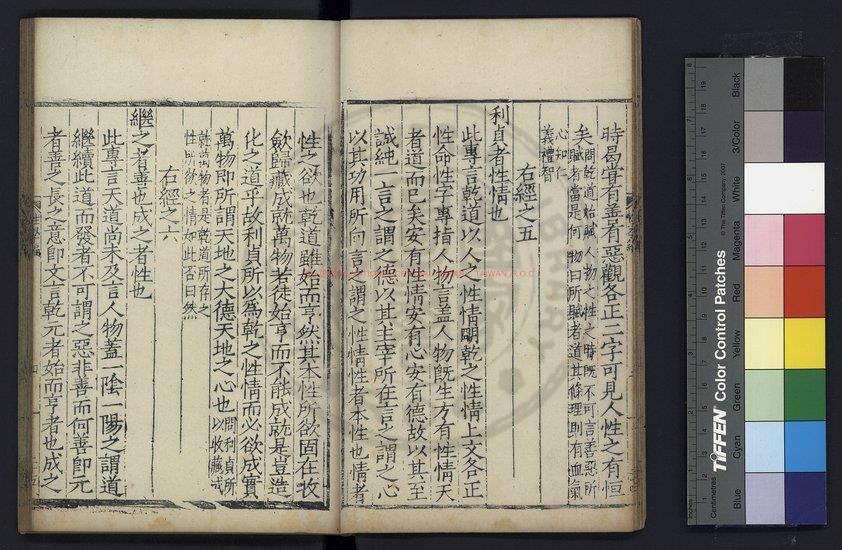 時曷嘗有善有惡觀各正二字可見人性之有恒
矣問乾道始賦人物之性之時既不可言善惡所
賦者當是何物曰所賦者道其條理則有血氣
心知
義禮智
右經之五
利貞者性情也
此專言乾道以人之性情明乾之性情上文各正
性命性字專指人物言蓋人物既生方有性情天
者道而已矣安有性情安有心安有德故以其至
誠純一言之謂之德以其主宰所在言之謂之心
以其功用所向言之謂之性情性者本性也情者
性之欲也乾道雖始而亨然其本性所欲固在收
斂歸藏成就萬物若徒始亨而不能成就是豈造
化之道乎故利貞所以為乾之性情而必欲成實
萬物即所謂天地之大德天地之心也問利貞所以收藏成
就萬物者是乾道所存之
性所欲之情如此否曰然
右經之六
繼之者善也成之者性也
此專言天道尚未及言人物蓋一陰一陽之謂道
繼續此道而發者不可謂之惡非善而何善即元
者善之長之意即文言乾元者始而亨者也成之
Inches
Centimetres
TIFFEN Color Control Patches
© The Tiffen Company, 2007
Blue
Cyan
Green
Yellow
Red
Magenta
White
3/Color
Black